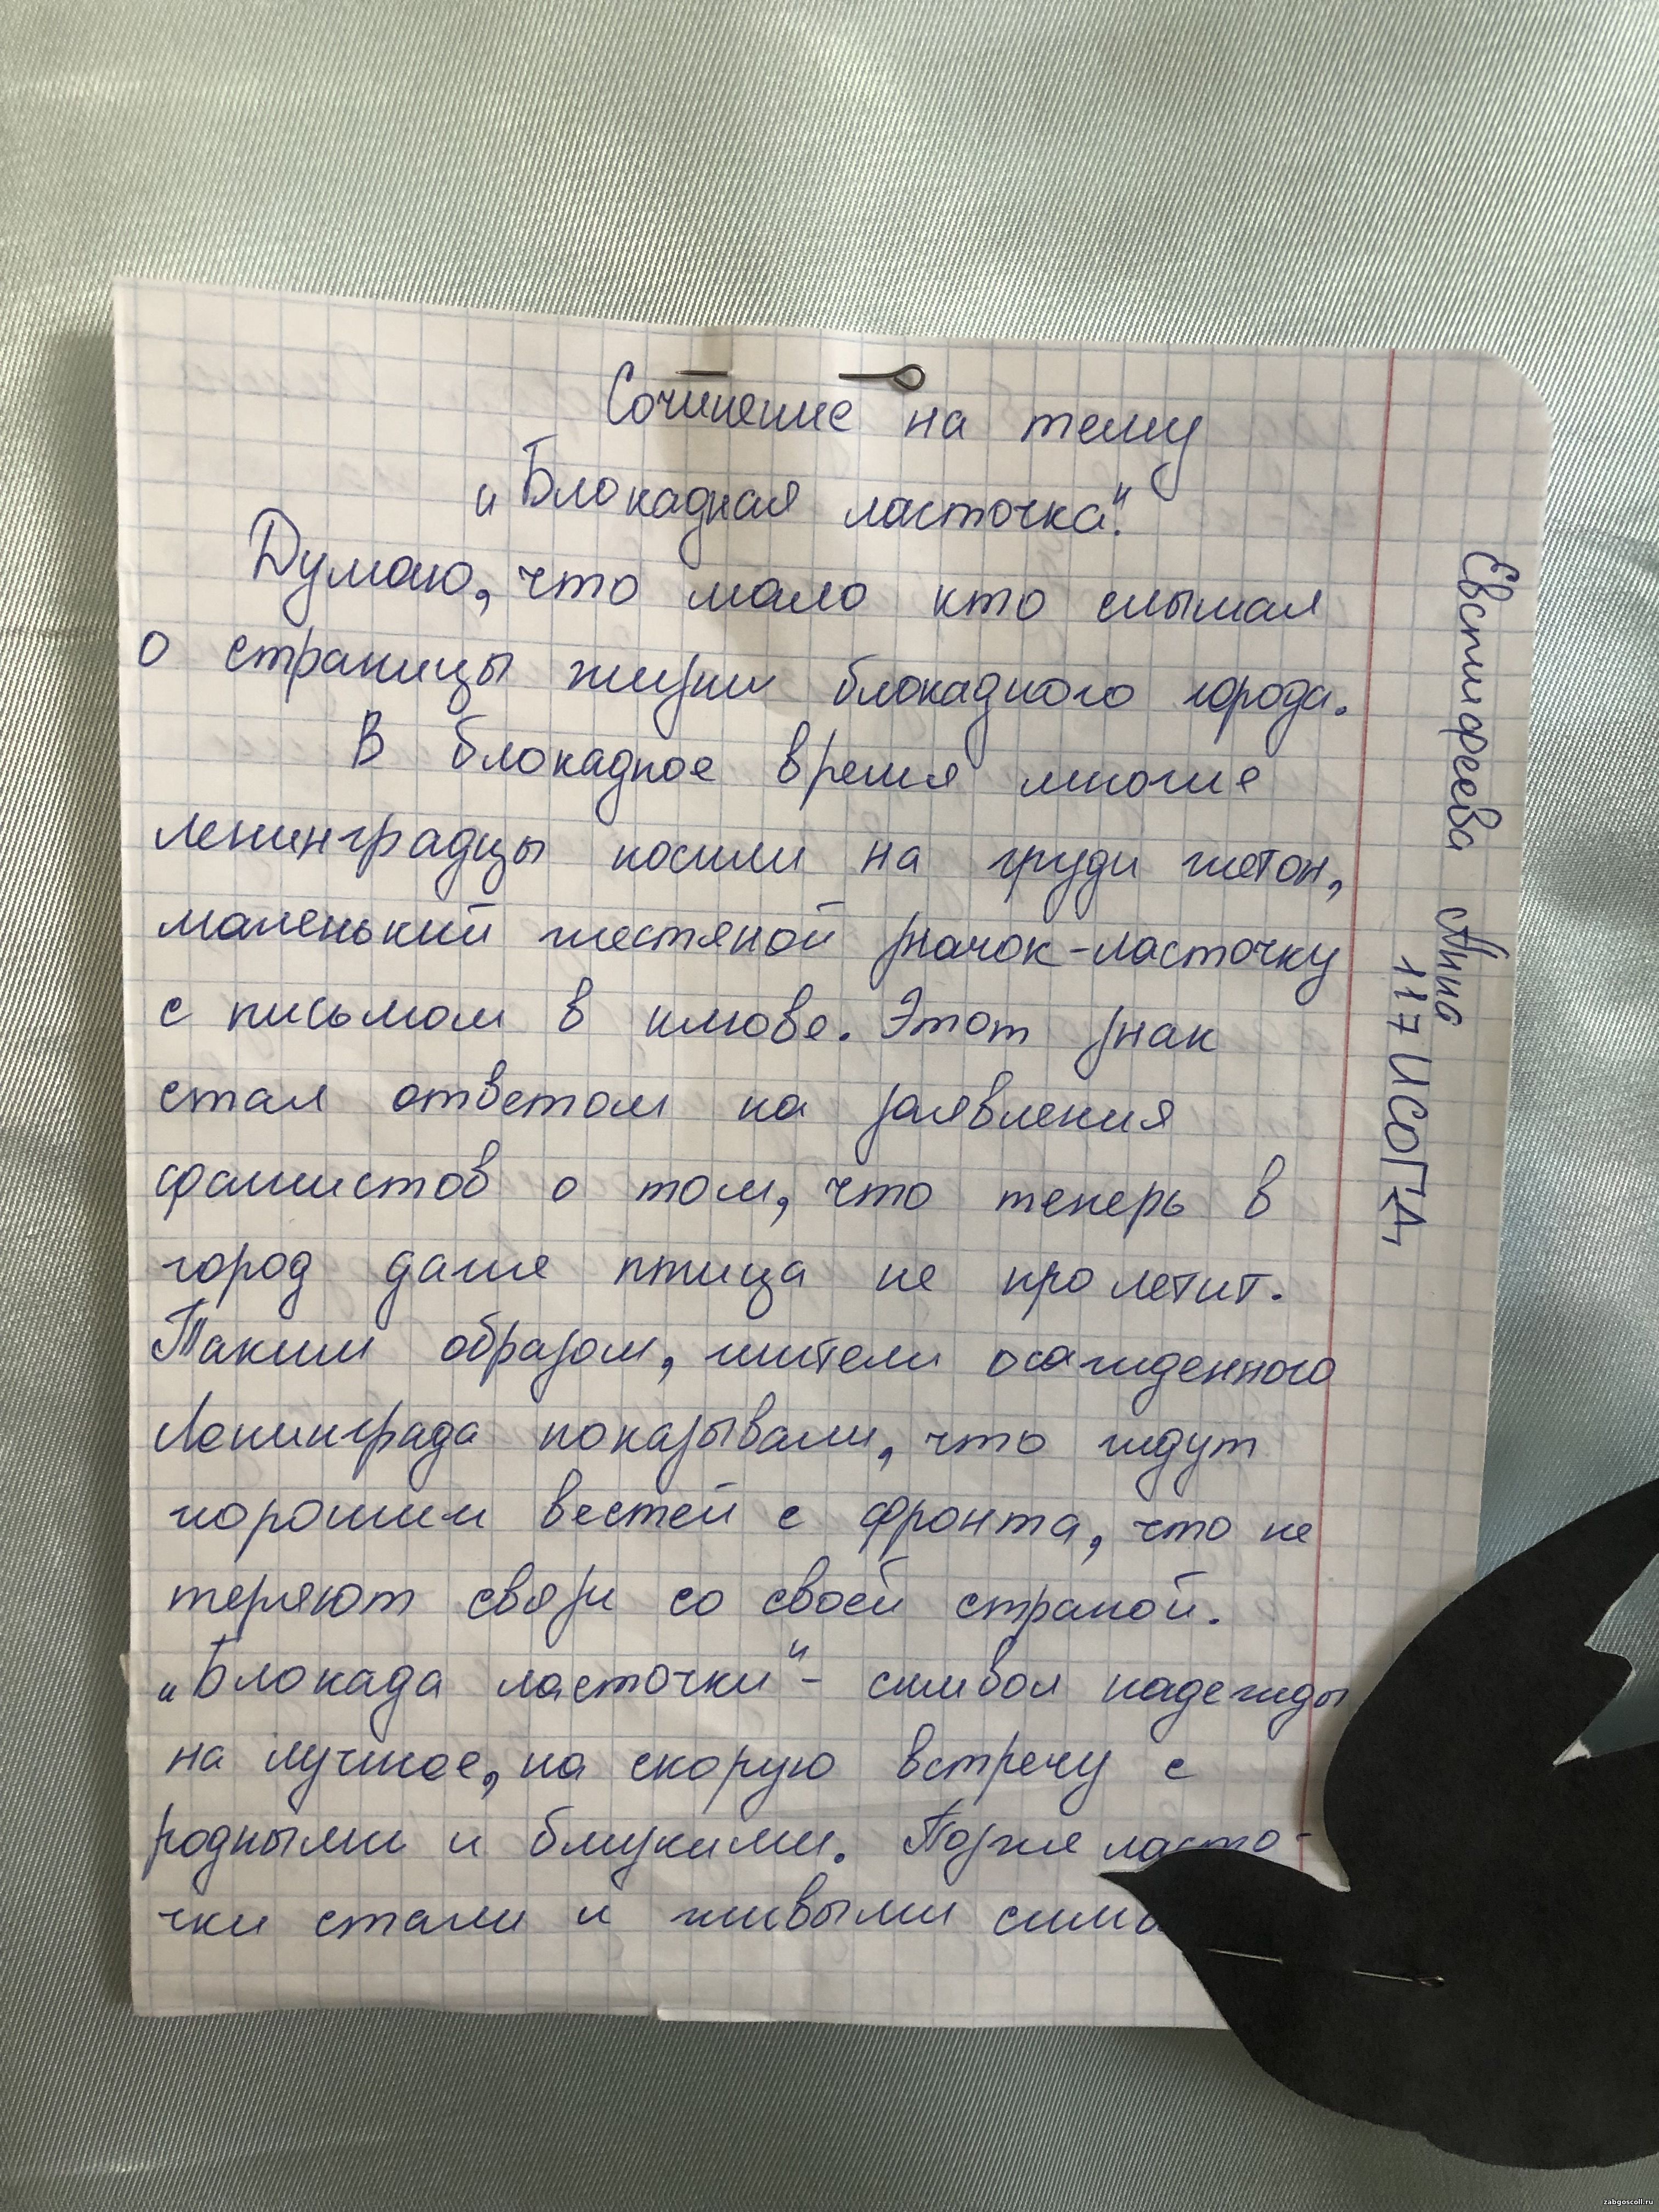 Сочинение на тему
„Блокадная ласточка".
Думаю, что мало кто слышал
о страницы жизни блокадного города.
В блокадное время многие
ленинградцы носили на груди жетон,
маленький жестяной значок-ласточку
с письмом в клюве. Этот знак
стал ответом на заявления
фашистов о том, что теперь в
город даже птица не пролетит.
Таким образом, жители осажденного
Ленинграда показывали, что ждут
хороших вестей с фронта, что не
теряют связи со своей страной.
„Блокада ласточки" - символ надежды
на лучшее, на скорую встречу с
родными и близкими. Позже ласто-
чки стали и живыми
Евстифеева Анна
117 ИСОГД
zabgoscoll.ru